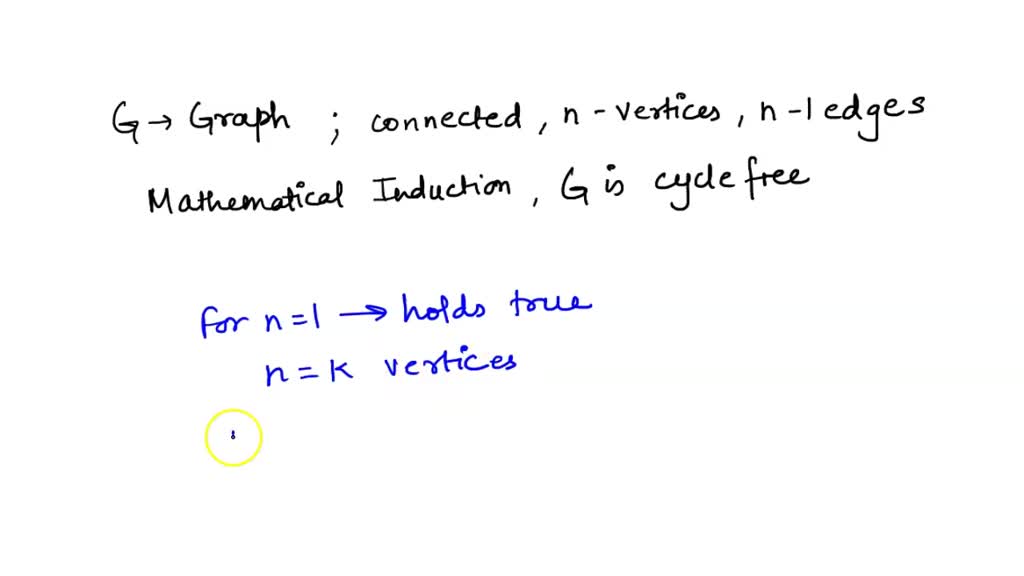 G → Graph ; connected, n - vertices, n-1 edges
Mathematical Induction, G is cycle free
for n=1 → holds true
n = k vertices